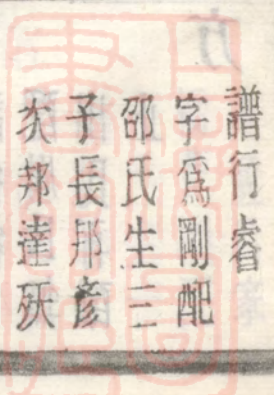 譜行睿
字爲剛配
邵氏生三
子長邦彥
次邦達殀